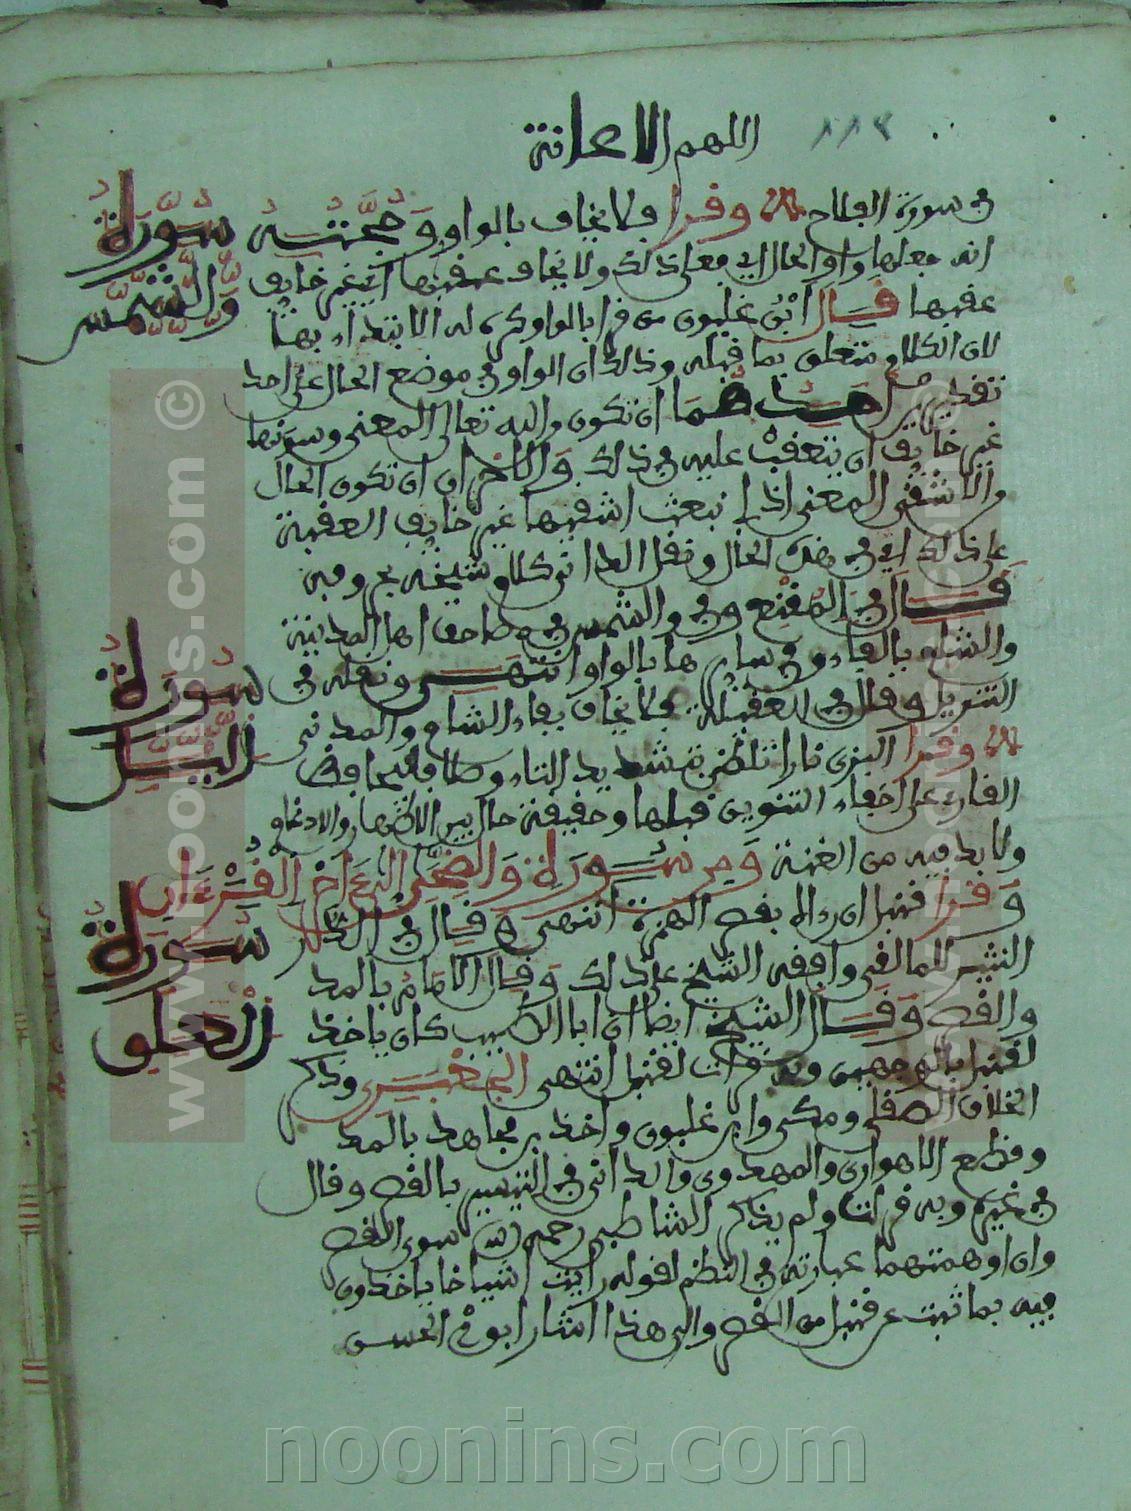 ١١٣
اللهم الاعانة
في سورة الفلاح وقرا فلا يخاف بالواو وحجته سورة
انه جعلها واو الحال اي فعل ذلك ولا يخاف عقبها اي غير خايف والشمس
عقبها قال ابن غلبون من قرا بالواو كره له الابتداء بها
لان الكلام متعلق بما قبله وذلك ان الواو في موضع الحال على احد
تقديرين احدهما ان تكون والله تعالى المعنى وسونها
غير خايف ان يتعقب عليه في ذلك والاخر ان تكون الحال
والاشقى المعنى اذا نبعث اشقيها غير خايف العقبة
على ذلك اي في هذه الحال ونقل الداني كلام شيخه بحروفه
قال في المقنع وفي والشمس في مصاحف اهل المدينة
والشام بالفاء وفي سايرها بالواو انتهى ونقله في سورة
التنزيل وقال في العقيلة فلا يخاف بفاء الشام والمدني اليل
وقرا البزي نارا تلظى بتشديد التاء وصلا فليحافظ
القاري على اخفاء التنوين قبلها وحقيقة حال بين الاظهار والادغام
ولا بد فيه من الغنة ومن سورة والضحى الى اخر القرءان
وقرا قنبل ان راه بقصر الهمزة انتهى وقال في الدر سورة
النثير للمالقي وافقه الشيخ على ذلك وقال الامام بالمد العلق
والقصر وقال الشيخ ايضا ان ابا الطيب كان ياخذ
لقنبل بالوجهين وبه قرات لقنبل انتهى وذكر
الخلاف الصقلي ومكي وابن غلبون واخذ بن مجاهد بالمد
وقطع الاهوازي والمهدوي والداني في التيسير بالقصر وقال
في غيره وبه قرات ولم يذكر الشاطبي رحمه الله سوى القصر
وان اوهمتهما عبارته في النظم لقوله رايت اشياخا ياخذون
فيه بما ثبت عن قنبل من القصر والى هذا اشار ابو الحسن
www.noonins.com ©
www.noonins.com ©
noonins.com